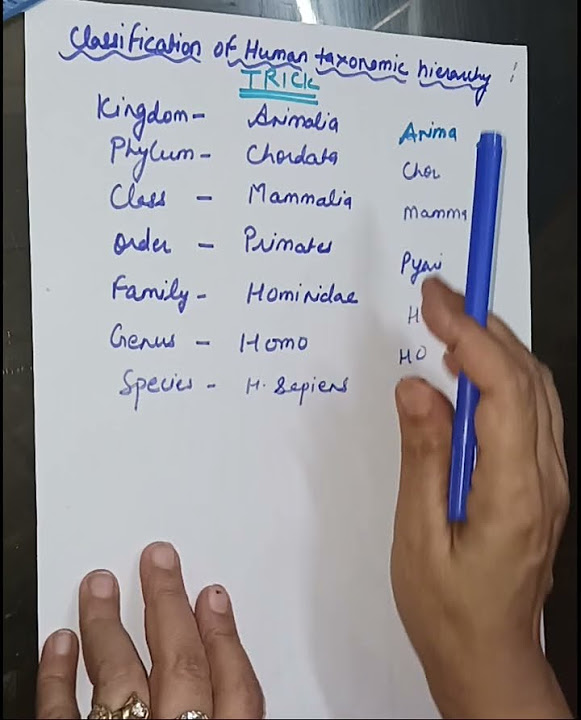 Classification of Human taxonomic hierarchy :
TRICK
Kingdom - Animalia Anima
Phylum - Chordata Chor
Class - Mammalia Mamma
Order - Primates Pyari
Family - Hominidae H
Genus - Homo HO
Species - H. Sapiens